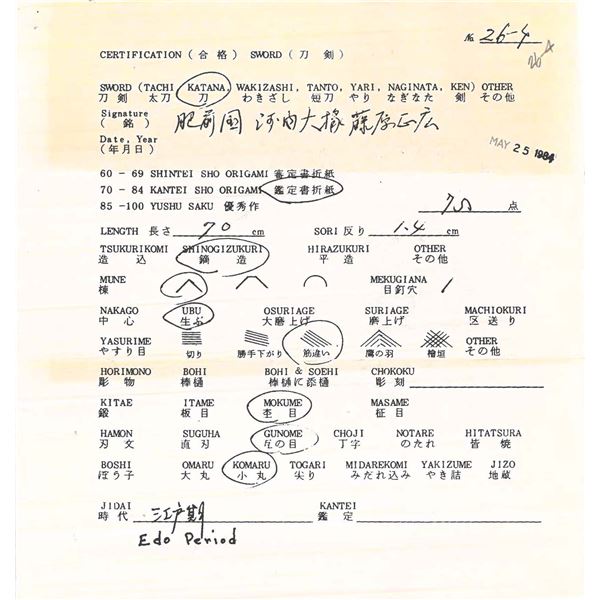 № 26-4
26-4
CERTIFICATION (合格) SWORD (刀剣)
SWORD (TACHI KATANA, WAKIZASHI, TANTO, YARI, NAGINATA, KEN) OTHER
刀剣 太刀 刀 わきざし 短刀 やり なぎなた 剣 その他
Signature
(銘) 肥前国 河内大掾 藤原正広
Date, Year
(年月日)
MAY 25 1984
60 - 69 SHINTEI SHO ORIGAMI 審定書折紙
70 - 84 KANTEI SHO ORIGAMI 鑑定書折紙
85 -100 YUSHU SAKU 優秀作
点
LENGTH 長さ 70 cm SORI 反り 1.4 cm
TSUKURIKOMI SHINOGIZUKURI HIRAZUKURI OTHER
造込 鎬造 平造 その他
MUNE MEKUGIANA
棟 目釘穴 1
NAKAGO UBU OSURIAGE SURIAGE MACHIOKURI
中心 生ぶ 大磨上げ 磨上げ 区送り
YASURIME OTHER
やすり目 切り 勝手下がり 筋違い 鷹の羽 檜垣 その他
HORIMONO BOHI BOHI & SOEHI CHOKOKU
彫物 棒樋 棒樋に添樋 彫刻
KITAE ITAME MOKUME MASAME
鍛 板目 杢目 柾目
HAMON SUGUHA GUNOME CHOJI NOTARE HITATSURA
刃文 直刃 互の目 丁字 のたれ 皆焼
BOSHI OMARU KOMARU TOGARI MIDAREKOMI YAKIZUME JIZO
ぼう子 大丸 小丸 尖り みだれ込み やき詰 地蔵
JIDAI KANTEI
時代 江戸期 鑑定
Edo Period